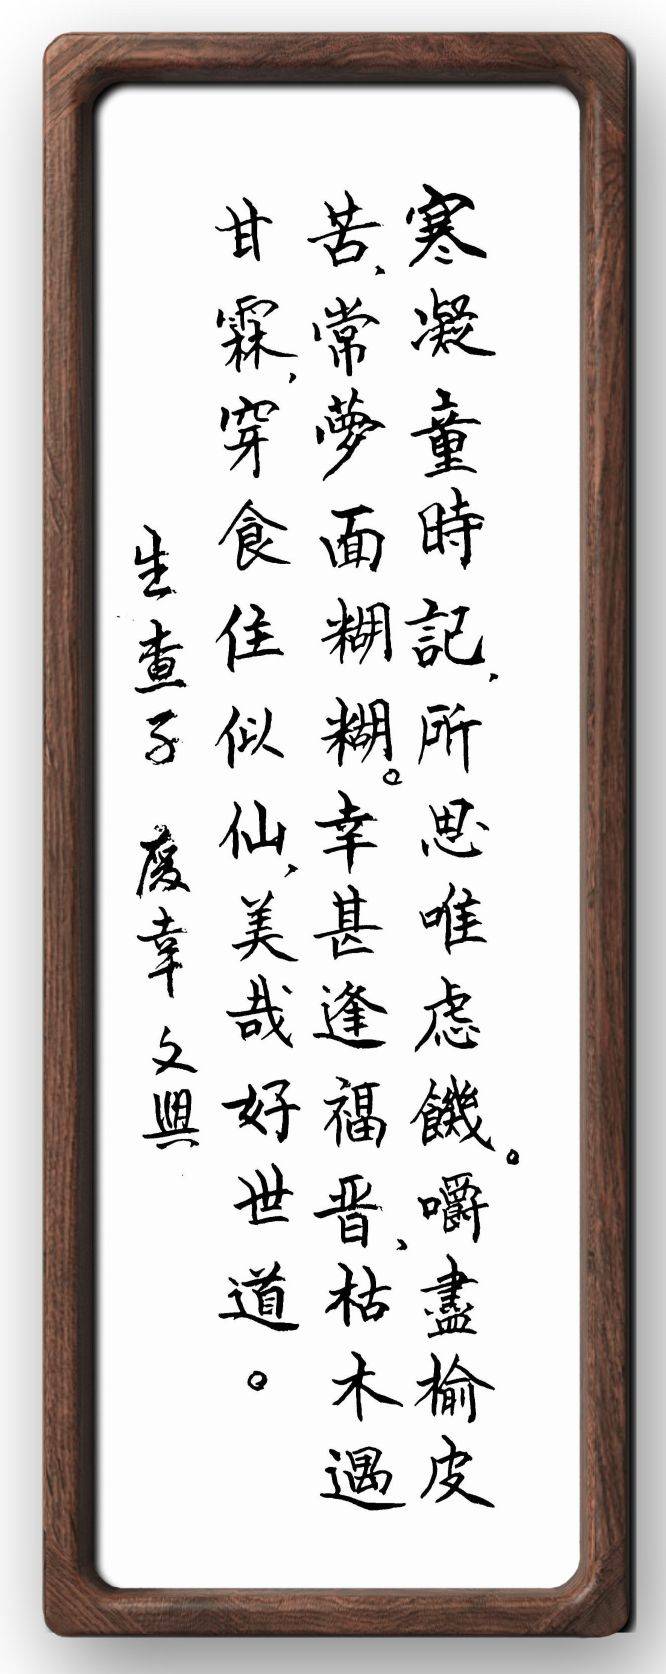 寒凝童時記，所思唯虑饑。嚼盡榆皮
苦，常夢面糊糊。幸甚逢福晋，枯木遇
甘霖，穿食住似仙，美哉好世道。
生查子 慶幸 文興